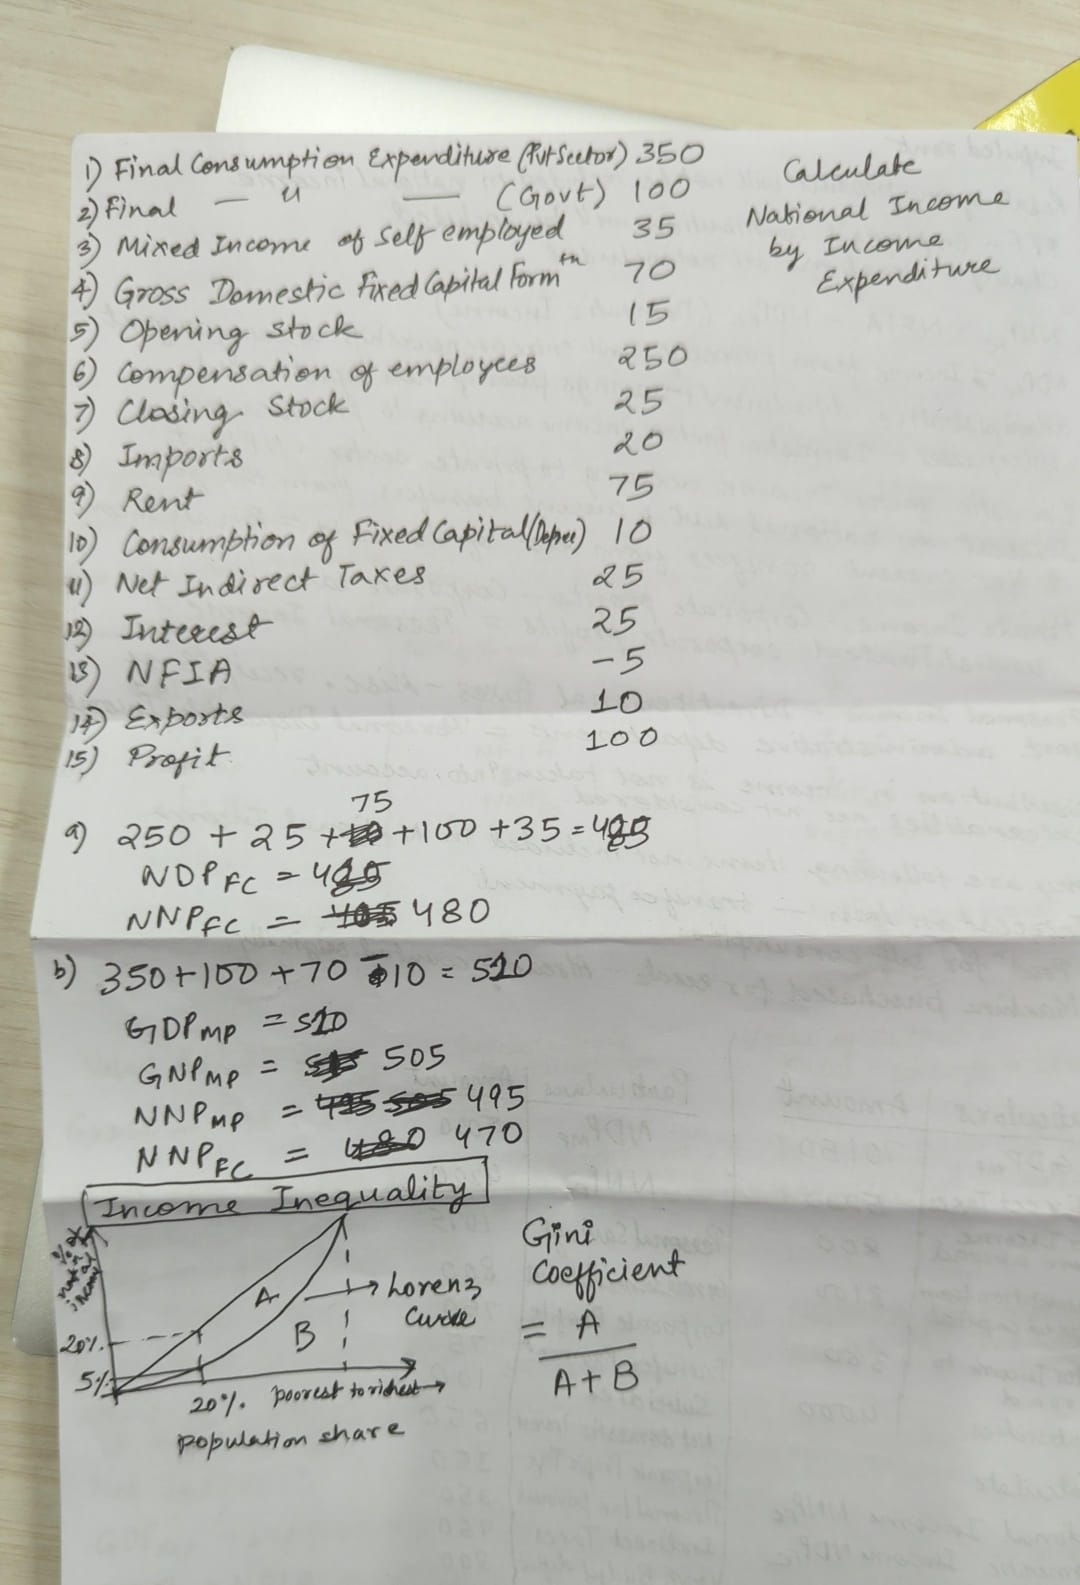 1) Final Consumption Expenditure (Pvt Sector) 350
2) Final — " — (Govt) 100
3) Mixed Income of Self employed 35
4) Gross Domestic Fixed Capital Formtn 70
5) Opening stock 15
6) Compensation of employees 250
7) Closing Stock 25
8) Imports 20
9) Rent 75
10) Consumption of Fixed Capital (Deprec) 10
11) Net Indirect Taxes 25
12) Interest 25
13) NFIA -5
14) Exports 10
15) Profit 100
Calculate
National Income
by Income
Expenditure
75
a) 250 + 25 + + 100 + 35 = 485
NDP FC = 485
NNP FC = 480
b) 350 + 100 + 70 - 10 = 510
GDP MP = 510
GNP MP = 505
NNP MP = 495
NNP FC = 470
Income Inequality
% of
income
20%
5%
A
B
Lorenz
Curve
20% poorest to richest
population share
Gini
Coefficient
= A
A + B